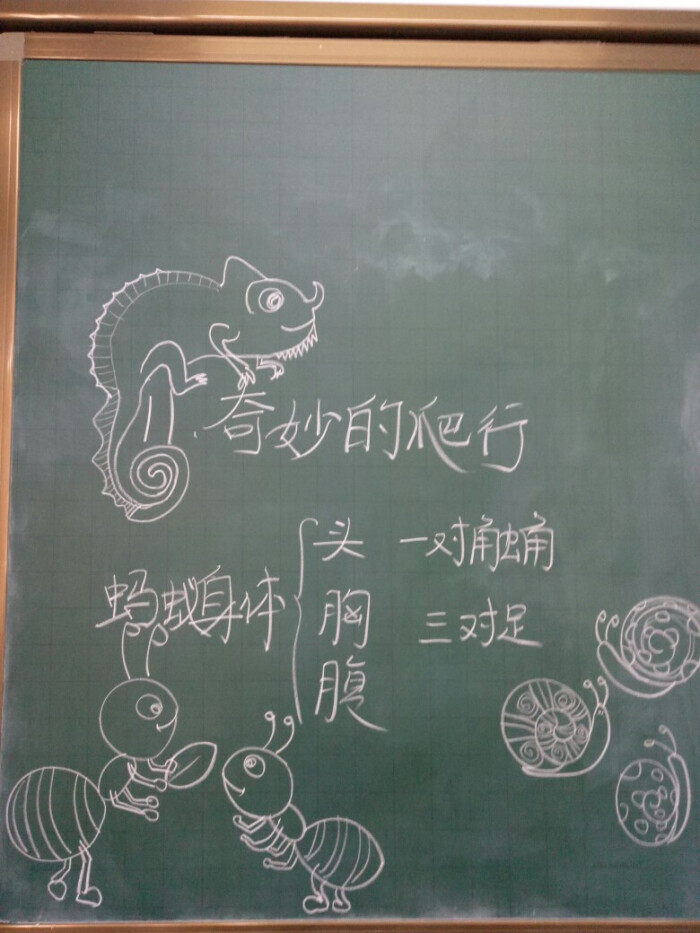 奇妙的爬行
头 一对触角
蚂蚁身体 胸 三对足
腹